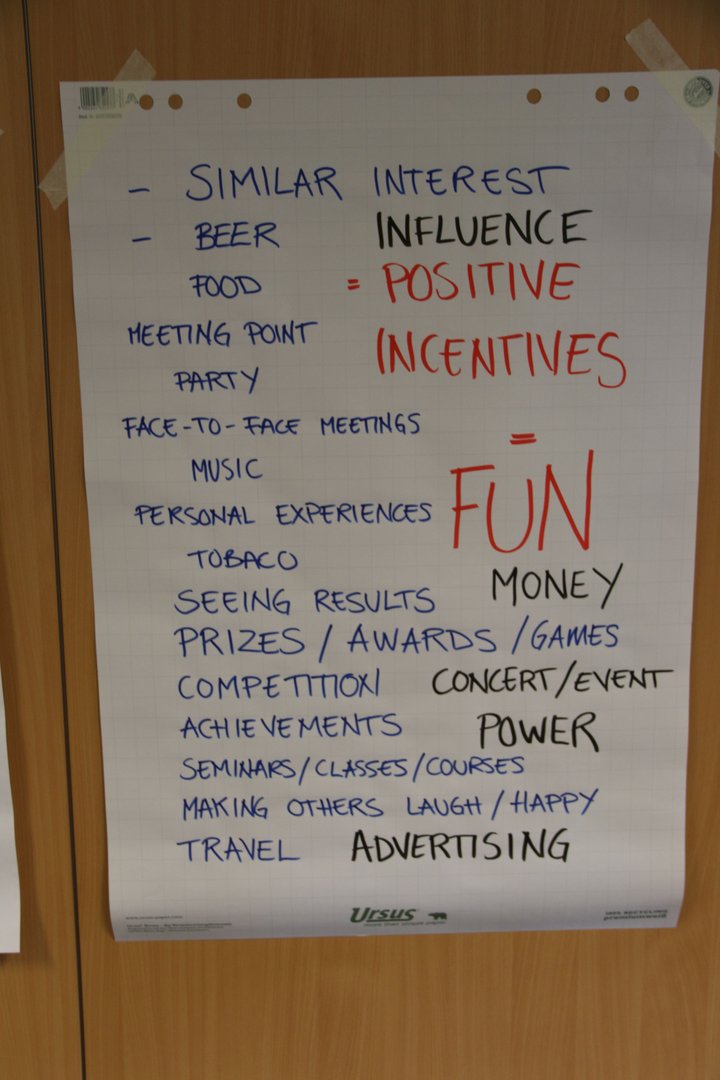 - SIMILAR INTEREST
- BEER INFLUENCE
FOOD = POSITIVE
MEETING POINT INCENTIVES
PARTY
FACE-TO-FACE MEETINGS =
MUSIC FUN
PERSONAL EXPERIENCES
TOBACO MONEY
SEEING RESULTS
PRIZES / AWARDS / GAMES
COMPETITION CONCERT/EVENT
ACHIEVEMENTS POWER
SEMINARS/CLASSES/COURSES
MAKING OTHERS LAUGH / HAPPY
TRAVEL ADVERTISING
Ursus
100% RECYCLING
premiumweiß